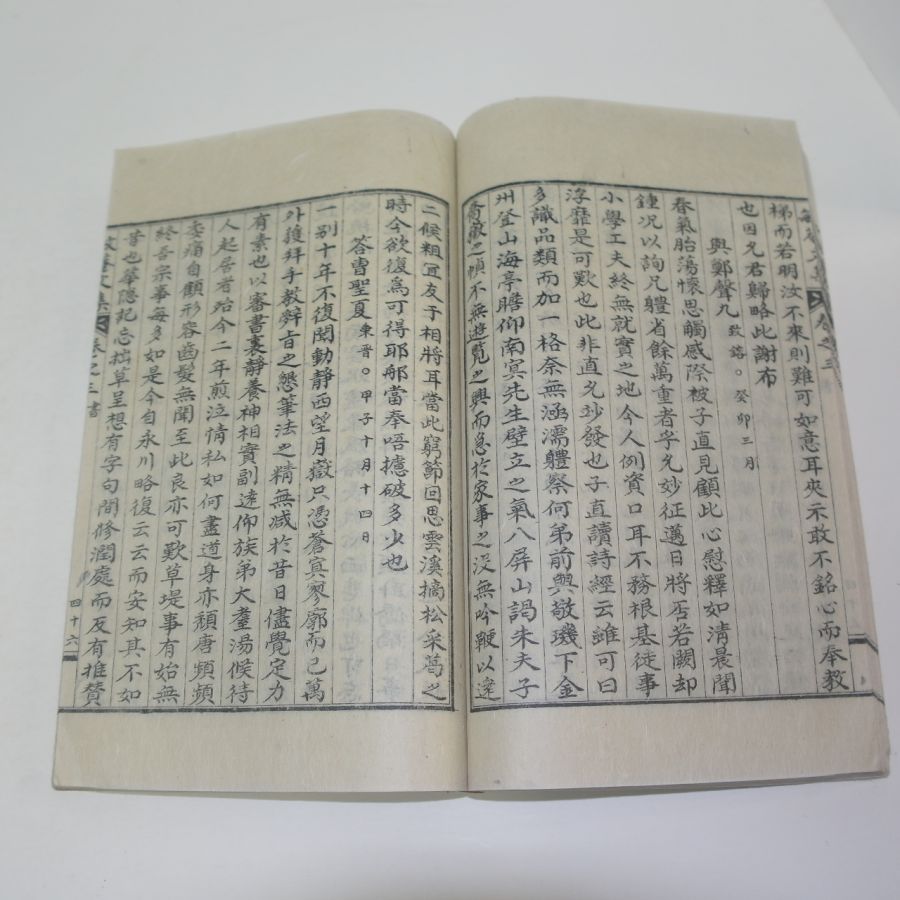 梯而若明汝不來則難可如意耳夾示敢不銘心而奉教
也因允君歸略此謝布
與鄭聲九 致鎔。癸卯三月
春氣胎蕩懷思觸感際被子直見顧此心慰釋如淸晨聞
鍾况以詢兄軆省餘萬重者乎允妙征邁日將否若闕却
小學工夫終無就實之地今人例資口耳不務根基徒事
浮靡是可歎也此非直允妙發也子直讀詩經云雖可曰
多識品類而加一格奈無涵濡軆察何弟前與敬璣下金
州登山海亭瞻仰南冥先生壁立之氣八屛山謁朱夫子
喬嶽之幀不無遊覽之興而急於家事之沒無吟鞭以還
二候粗宜友于相將耳當此窮節回思雲溪摘松采蕚之
時今欲復爲可得耶那當奉唔攄破多少也
答曺聖夏 秉晋。甲子十月十四日
一別十年不復聞動靜西望月嶽只憑蒼冥廖廓而已萬
外獲拜手敎辭旨之懇筆法之精無减於昔日儘覺定力
有素也以審書裏靜養神相實副遠仰族弟大耋湯候待
人起居者殆今二年煎泣情私如何盡道身亦頹唐頻頻
委痛自顧形容齒髮無聞至此良亦可歎草堤事有始無
終吾宗事每多如是今自永川略復云云而安知其不如
昔也華隱記忘拙草呈想有字句間修潤處而及有推贊
卷之三 書
四十六